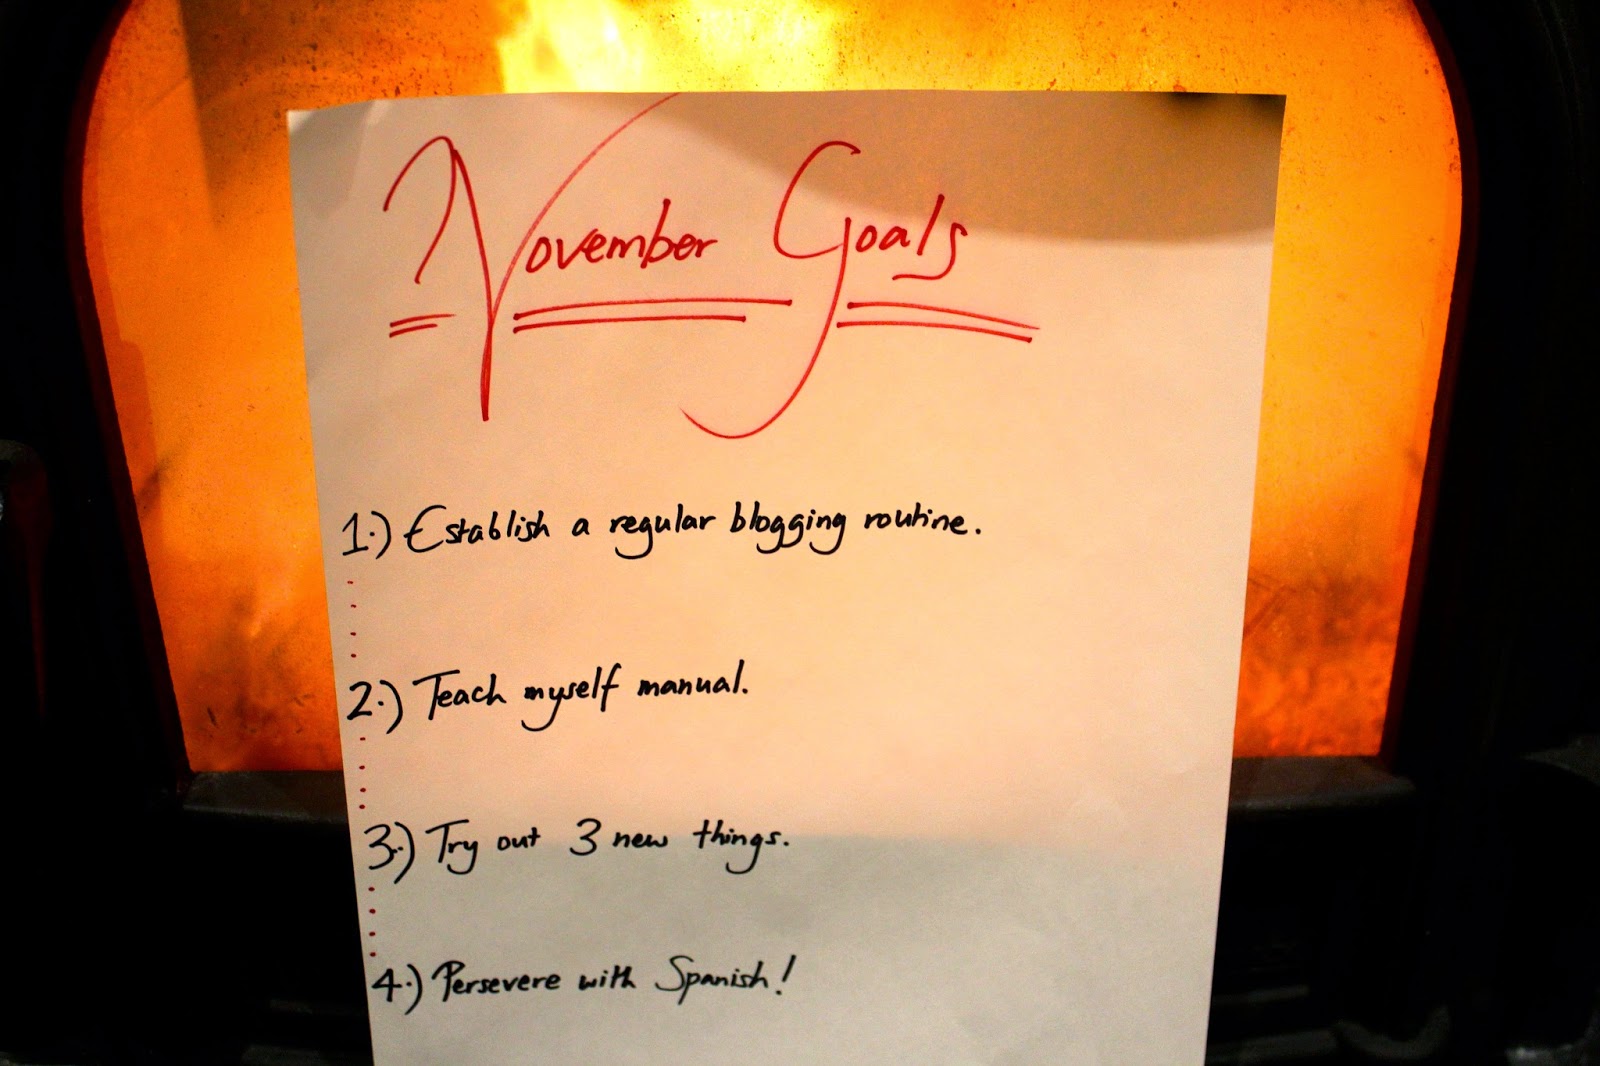 November Goals
1.) Establish a regular blogging routine.
2.) Teach myself manual.
3.) Try out 3 new things.
4.) Persevere with Spanish!